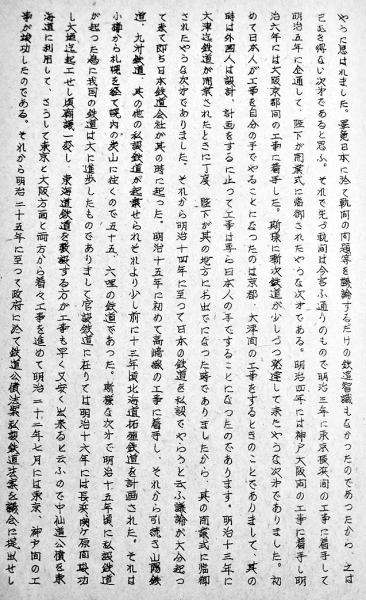 やうに思はれました。畢竟日本に於て軌間の問題等を議論するだけの鉄道智識もなかつたのであつたから、之は
已むを得ない次才であると思ふ。それで先づ軌間は今言ふ通りのもので明治三年に東京横浜間の工事に着手して
明治五年に全通して、陛下が開業式に臨御されたやうな次才である。明治四年には神戸大阪間の工事に着手し明
治六年には大阪京都間の工事に着手した。斯様に漸次鉄道が少しづつ発達して来たやうな次才でありました。初
めて日本人が工事を自分の手でやることになつたのは京都、大津間の工事をするときのことでありまして、其の
時は外国人は設計、計画をするに止つて工事は専ら日本人の手ですることになつたのであります。明治十三年に
大津迄鉄道が開業されたときに丁度、陛下が其の地方にお出でになつた時でありましたから、其の開業式に臨御
されたやうな次才でありました。それから明治十四年に至つて日本の鉄道を私設でやらうと云ふ議論が大分起つ
て来て即ち日本鉄道会社が其の時に起つた。明治十五年に初めて高崎線の工事に着手し、それから引続き山陽鉄
道、九州鉄道、其の他の私設鉄道が起業せられそれより少し前に十三年頃北海道拓殖鉄道を計画された。それは
小樽から札幌を経て幌内の炭山に往くので五十五、六哩の鉄道であつた。斯様な次才で明治十五年頃に私設鉄道
が起つた為に我国の鉄道は大に進歩したものでありまして官設鉄道に在りては明治十六年には長浜、関ケ原間竣功
し大垣迄起工せし頃廟議一変し、東海道鉄道を敷設する方が工事も早く又安く出来ると云ふので中仙道公債を東
海道に利用して、さうして東京と大阪方面と両方から着々工事を進めて明治二十二年七月には東京、神戸間の工
事が竣功したのである。それから明治二十五年に至つて政府に於て鉄道公債法案私設鉄道法案を議会に提出せし